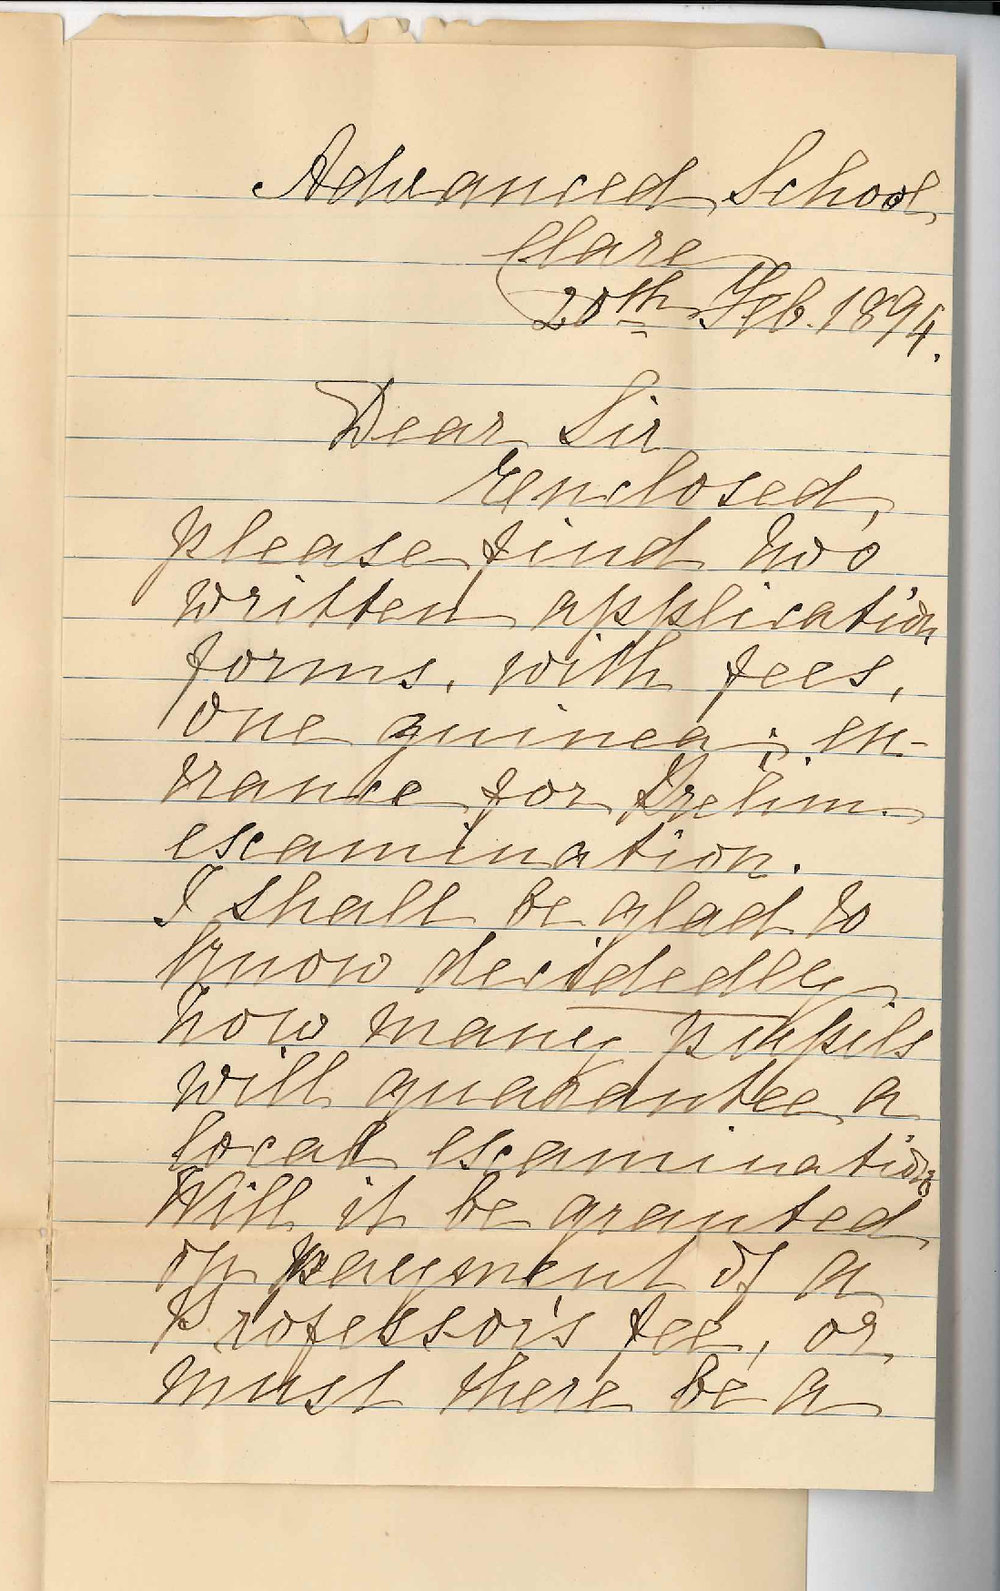 Advanced School,
Clare
20th Feb. 1894.
Dear Sir
Enclosed,
please find two
written application
forms, with fees,
one guinea; en-
trance for Prelim.
examination.
I shall be glad to
know decidedly
how many pupils
will guarantee a
local examination
Will it be granted
on payment of a
Professor's fee, or
must there be a